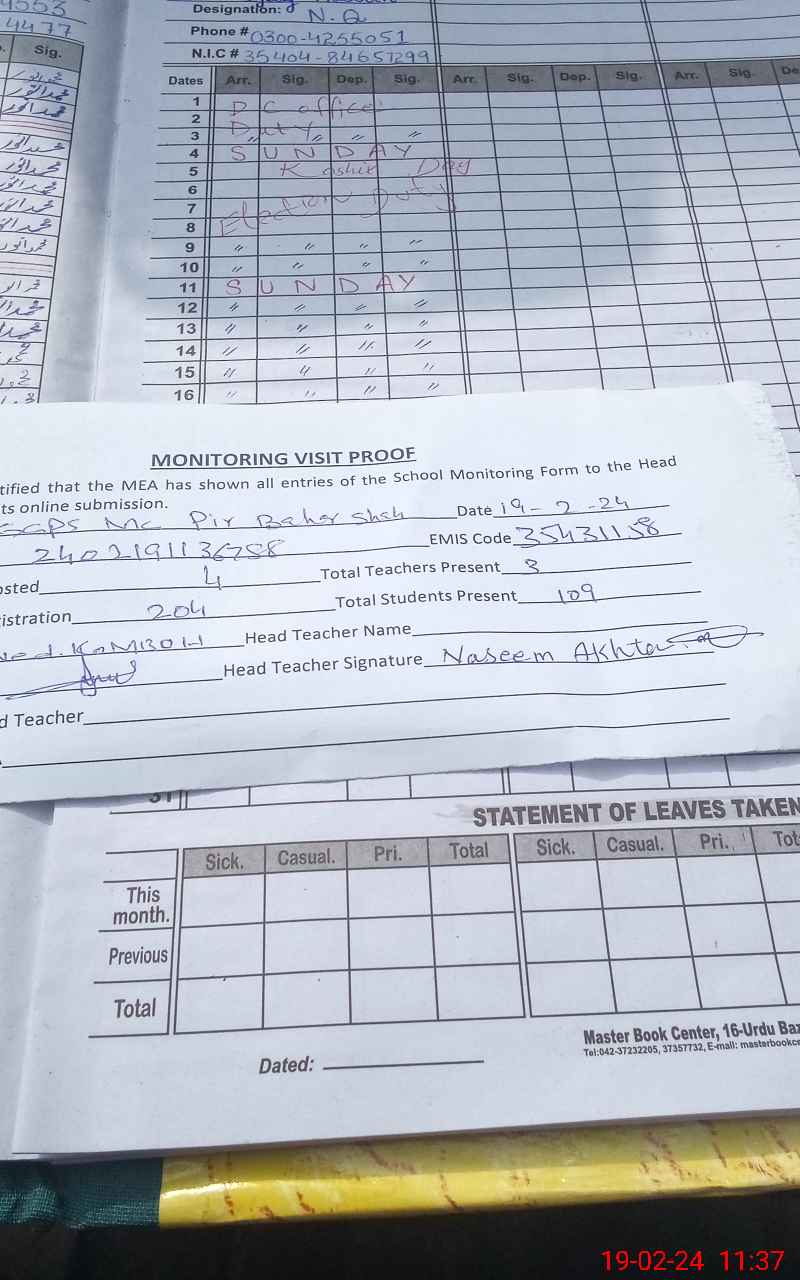 4477
Designation: N.Q
Phone # 0300-4255051
N.I.C # 35404-84657299
Sig.
Dates Arr. Sig. Dep. Sig. Arr. Sig. Dep. Sig. Arr. Sig. De
1 DC office
2
3 Duty " " "
4 SUNDAY
5 Kashir Day
6
7 Election Duty
8
9 " " " "
10 " " " "
11 SUNDAY
12 " " " "
13 " " " "
14 " " " "
15 " " " "
16 " " " "
MONITORING VISIT PROOF
tified that the MEA has shown all entries of the School Monitoring Form to the Head
ts online submission.
GGPS MC Pir Bahar Shah Date 19-2-24
2402191136758 EMIS Code 35431158
osted 4 Total Teachers Present 3
istration 204 Total Students Present 109
KAMBOH Head Teacher Name
Head Teacher Signature Naseem Akhtar
d Teacher
31
STATEMENT OF LEAVES TAKEN
Sick. Casual. Pri. Total Sick. Casual. Pri. Tot
This
month.
Previous
Total
Master Book Center, 16-Urdu Baz
Tel:042-37232205, 37357732, E-mail: masterbookce
Dated:
19-02-24 11:37